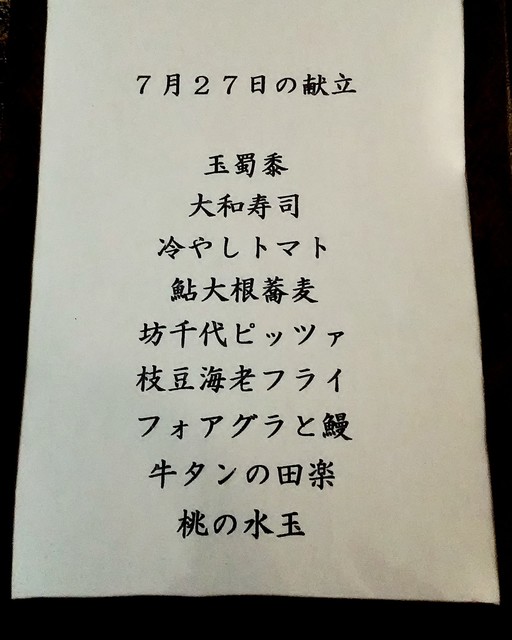 7月27日の献立
玉蜀黍
大和寿司
冷やしトマト
鮎大根蕎麦
坊千代ピッツァ
枝豆海老フライ
フォアグラと鰻
牛タンの田楽
桃の水玉